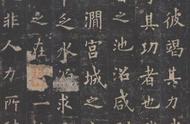 彼竭其力
其功者也
之池沼咸
澗宮城之
乏水源求
之在
非人力所